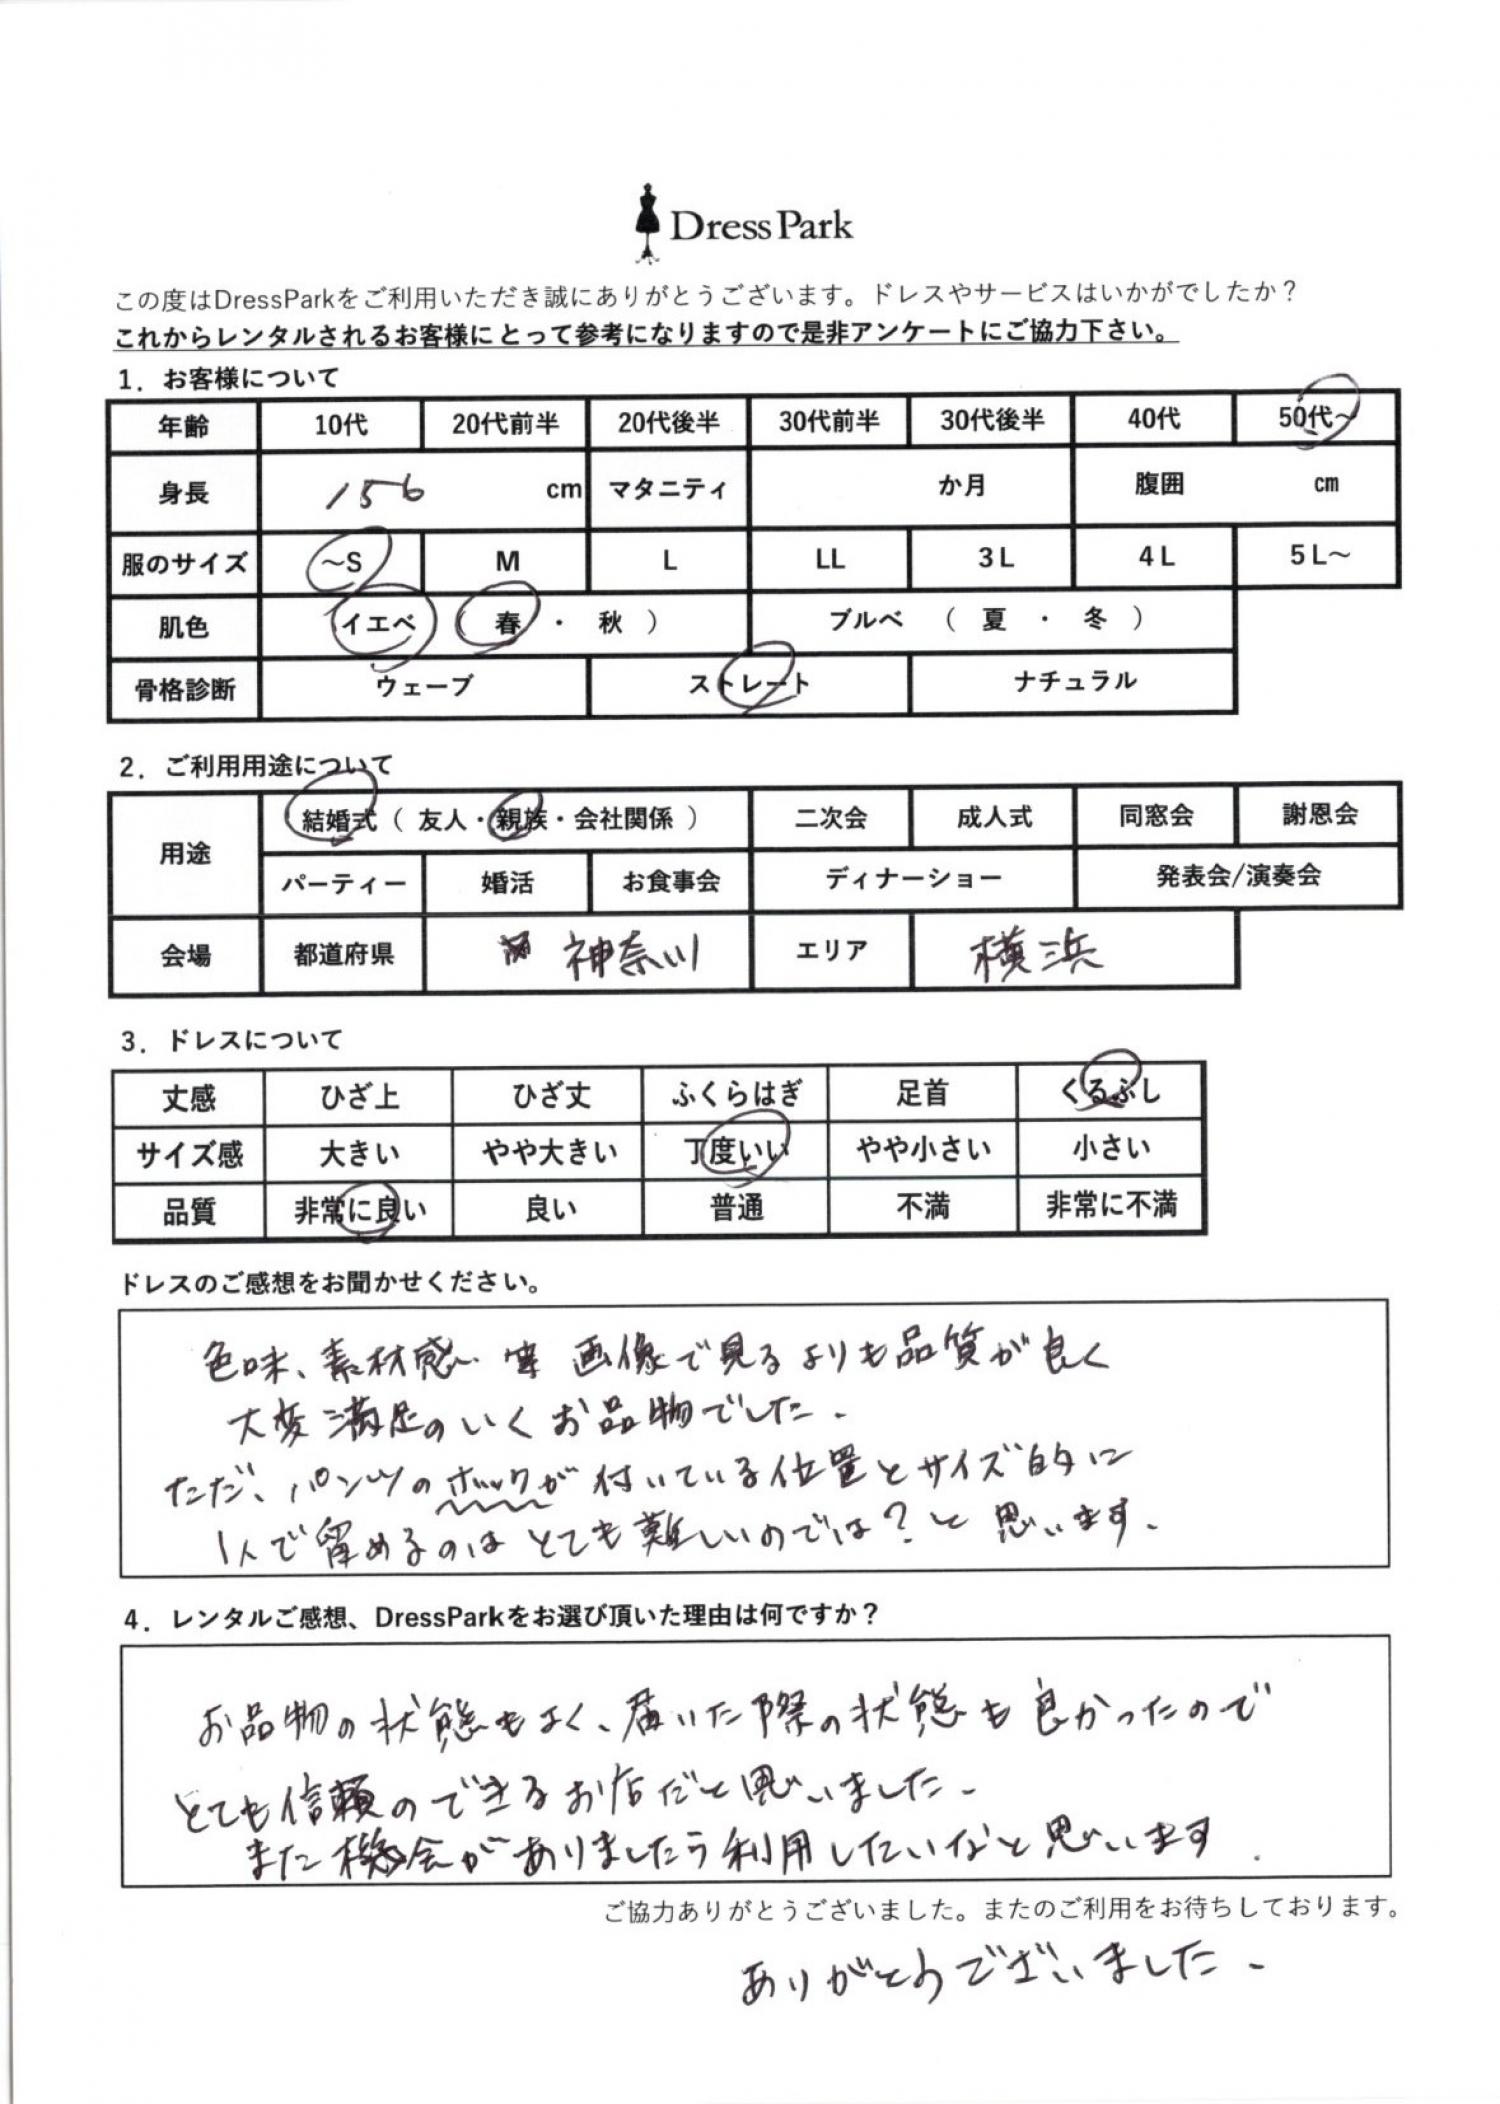 DressPark
この度はDressParkをご利用いただき誠にありがとうございます。ドレスやサービスはいかがでしたか？
これからレンタルされるお客様にとって参考になりますので是非アンケートにご協力下さい。
1．お客様について
年齢 10代 20代前半 20代後半 30代前半 30代後半 40代 50代～
身長 156 cm マタニティ か月 腹囲 cm
服のサイズ ～S M L LL 3L 4L 5L～
肌色 イエベ （ 春 ・ 秋 ） ブルベ （ 夏 ・ 冬 ）
骨格診断 ウェーブ ストレート ナチュラル
2．ご利用用途について
用途 結婚式（ 友人・親族・会社関係 ） 二次会 成人式 同窓会 謝恩会
パーティー 婚活 お食事会 ディナーショー 発表会/演奏会
会場 都道府県 神奈川 エリア 横浜
3．ドレスについて
丈感 ひざ上 ひざ丈 ふくらはぎ 足首 くるぶし
サイズ感 大きい やや大きい 丁度いい やや小さい 小さい
品質 非常に良い 良い 普通 不満 非常に不満
ドレスのご感想をお聞かせください。
色味、素材感 等 画像で見るよりも品質が良く
大変満足のいくお品物でした。
ただ、パンツのホックが付いている位置とサイズ的に
1人で留めるのはとても難しいのでは？と思います。
4．レンタルご感想、DressParkをお選び頂いた理由は何ですか？
お品物の状態もよく、届いた際の状態も良かったので
とても信頼のできるお店だと思いました。
また機会がありましたら利用したいなと思います.
ご協力ありがとうございました。またのご利用をお待ちしております。
ありがとうございました。